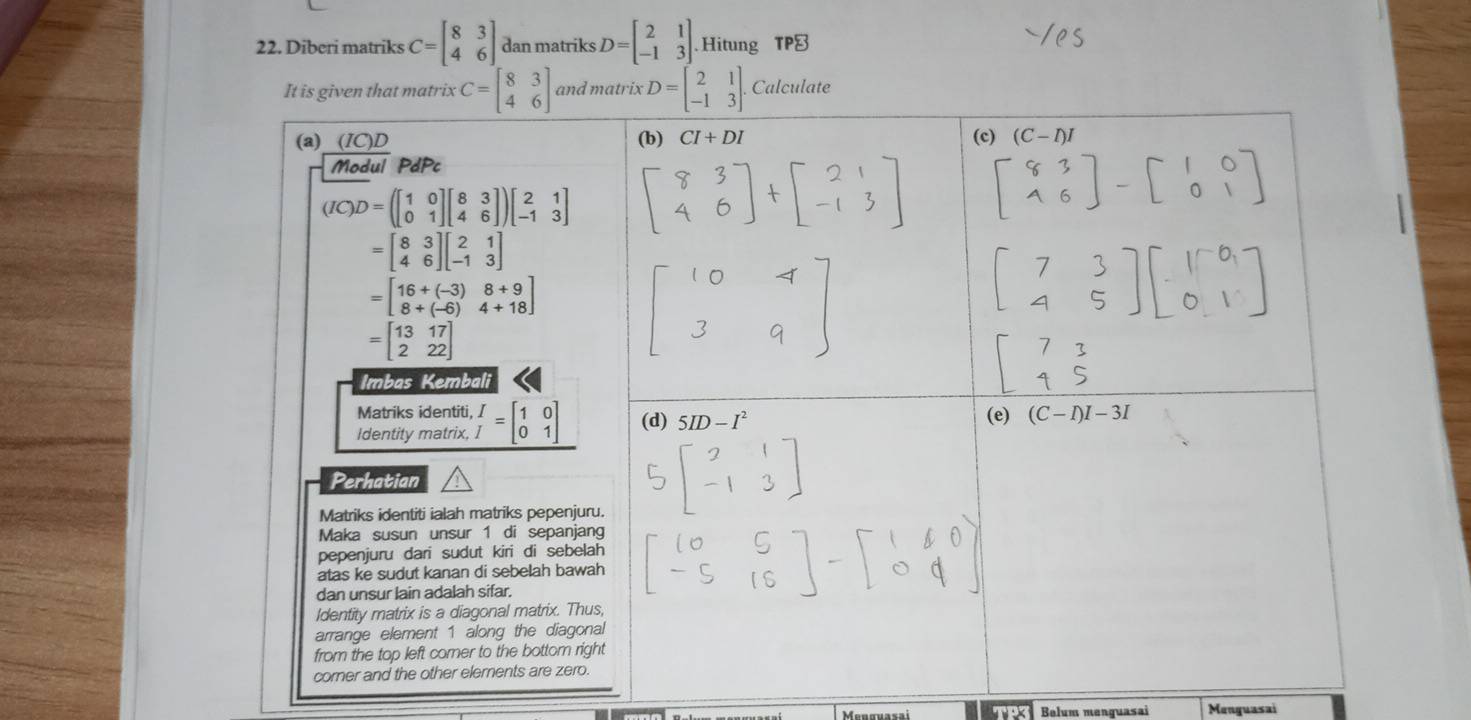 22. Diberi matriks C = [8 3; 4 6] dan matriks D = [2 1; −1 3]. Hitung TP3
Yes
It is given that matrix C = [8 3; 4 6] and matrix D = [2 1; −1 3]. Calculate
(a) (IC)D
Modul PdPc
(IC)D = ([1 0; 0 1][8 3; 4 6])[2 1; −1 3]
= [8 3; 4 6][2 1; −1 3]
= [16 + (−3) 8 + 9; 8 + (−6) 4 + 18]
= [13 17; 2 22]
Imbas Kembali
Matriks identiti, I
Identity matrix, I = [1 0; 0 1]
Perhatian
Matriks identiti ialah matriks pepenjuru.
Maka susun unsur 1 di sepanjang
pepenjuru dari sudut kiri di sebelah
atas ke sudut kanan di sebelah bawah
dan unsur lain adalah sifar.
Identity matrix is a diagonal matrix. Thus,
arrange element 1 along the diagonal
from the top left corner to the bottom right
corner and the other elements are zero.
(b) CI + DI
[8 3; 4 6] + [2 1; −1 3]
[10 4; 3 9]
(c) (C − I)I
[8 3; 4 6] − [1 0; 0 1]
[7 3; 4 5][1 0; 0 1]
[7 3; 4 5
(d) 5ID − I²
5[2 1; −1 3]
[10 5; −5 15] − [1 0; 0
(e) (C − I)I − 3I
Menguasai
TP3 Belum menguasai
Menguasai